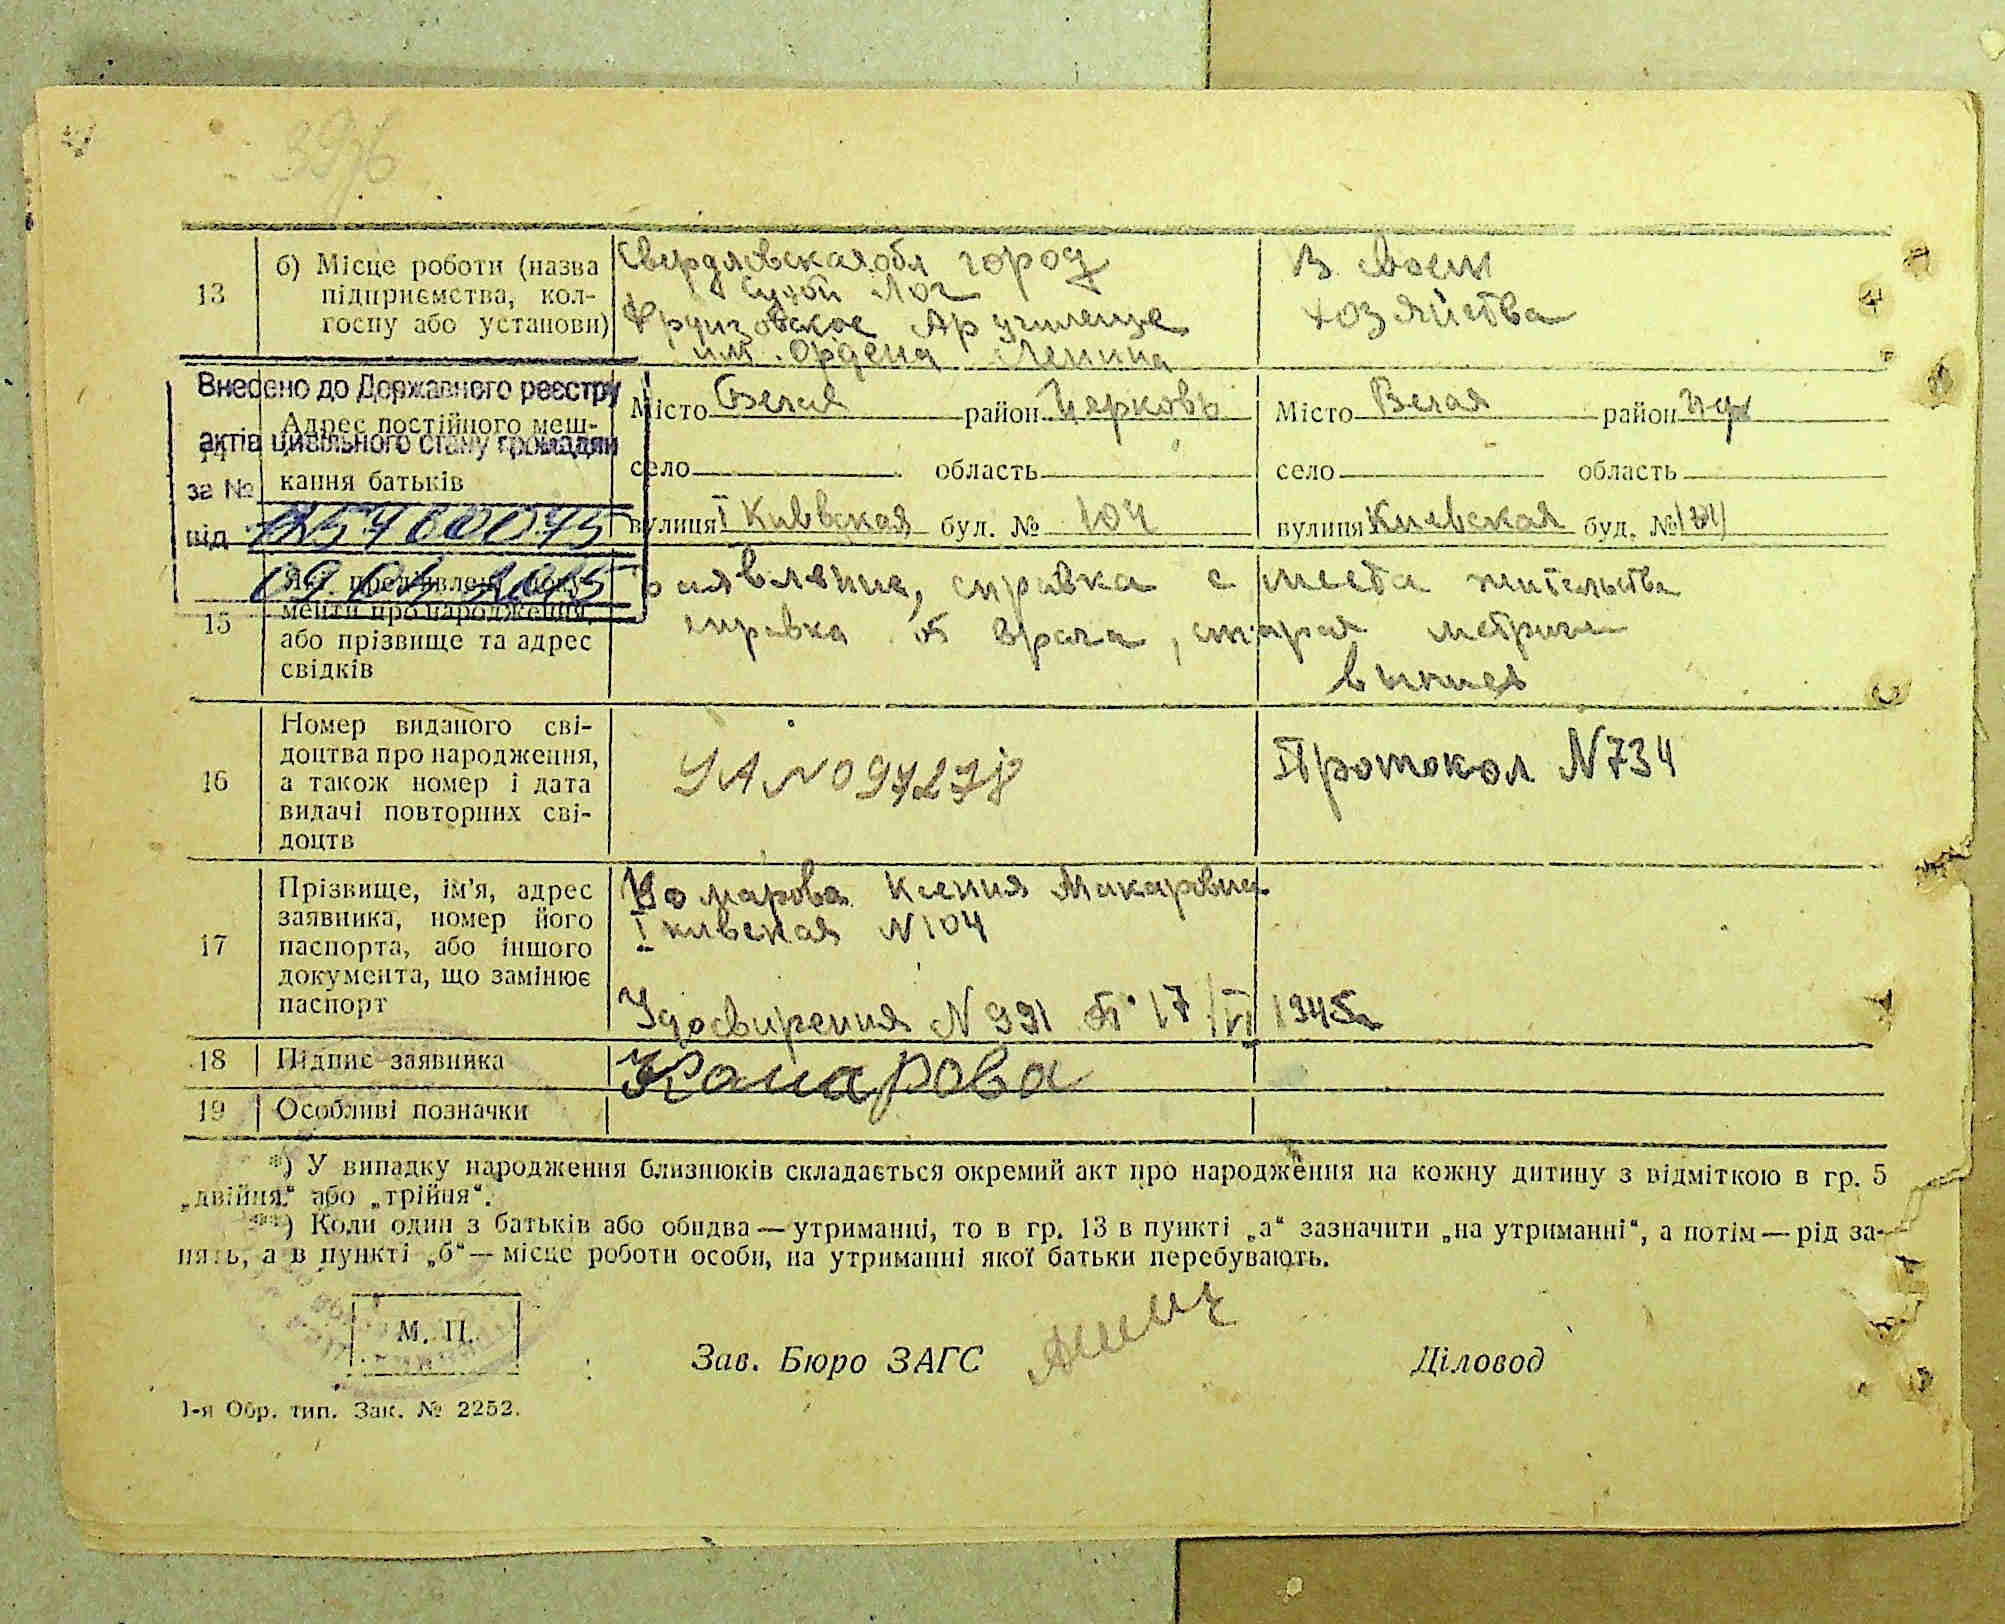 13
б) Місце роботи (назва
підприємства, кол-
госпу або установи)
Свердловская обл город
Сухой Лог
Фрунзовское Ар училеще
им. Ордена Ленина
В своем
хозяйства
Внесено до Державного реєстру
актів цивільного стану громадян
за №
від
09 04 2015
14
Адрес постійного меш-
кання батьків
Місто Белая район Церковь
село область
вулиця І Киевская буд. № 104
Місто Белая район Цер
село область
вулиця Киевская буд. № 104
15
Які пред'явлені доку-
менти про народження,
або прізвище та адрес
свідків
заявление, справка с места жительства
справка от врача, старая метрика
16
Номер виданого сві-
доцтва про народження,
а також номер і дата
видачі повторних сві-
доцтв
УА № 097278
Протокол N 734
17
Прізвище, ім'я, адрес
заявника, номер його
паспорта, або іншого
документа, що замінює
паспорт
Комарова Ксения Макаровна
І киевская N 104
Удосвирения N 991 от 17/VI 1945г
18
Підпис заявника
Комарова
19
Особливі позначки
*) У випадку народження близнюків складається окремий акт про народження на кожну дитину з відміткою в гр. 5
„двійня“ або „трійня“.
**) Коли один з батьків або обидва — утриманці, то в гр. 13 в пункті „а“ зазначити „на утриманні“, а потім — рід за-
нять, а в пункті „б“ — місце роботи особи, на утриманні якої батьки перебувають.
М. П.
Зав. Бюро ЗАГС
Діловод
1-я Обр. тип. Зак. № 2252.